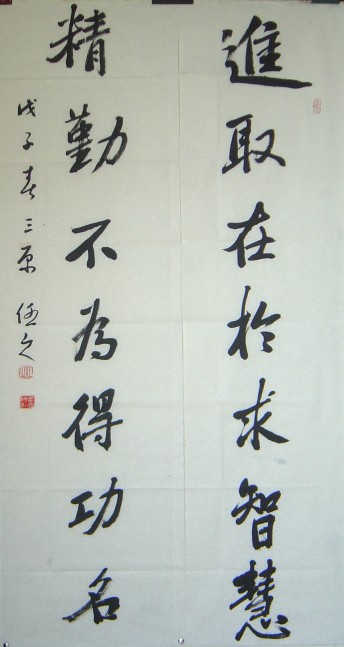 進取在於求智慧
精勤不為得功名
戊子春三原任之